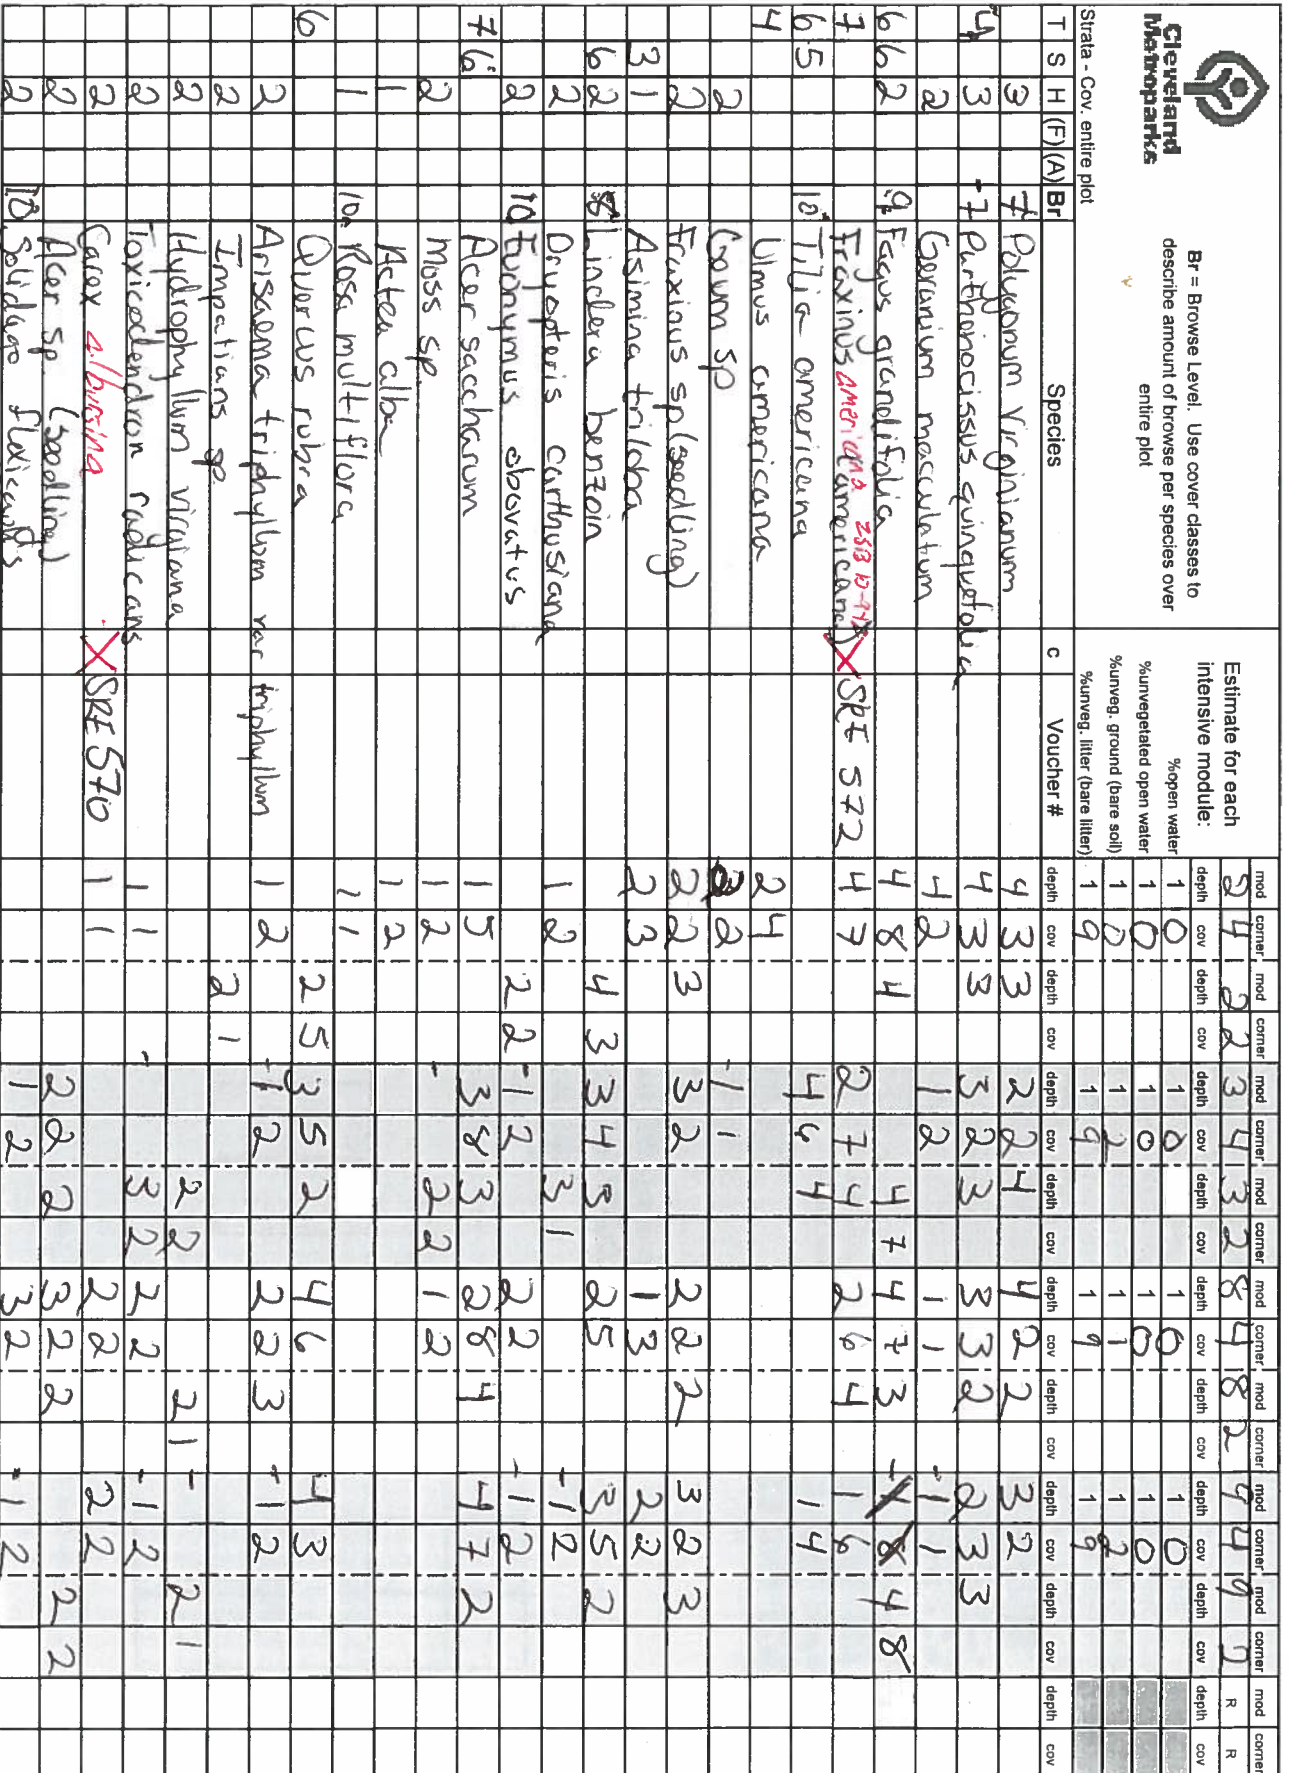 Cleveland Metroparks
Br = Browse Level. Use cover classes to describe amount of browse per species over entire plot
Estimate for each intensive module:
mod corner mod corner mod corner mod corner mod corner mod corner mod corner mod corner mod corner
2 4 2 2 3 4 3 2 8 4 8 2 9 4 9 2 R R
depth cov depth cov depth cov depth cov depth cov depth cov depth cov depth cov depth cov
%open water 1 0 1 0 1 0 1 0
%unvegetated open water 1 0 1 0 1 0 1 0
%unveg. ground (bare soil) 1 2 1 2 1 1 1 2
%unveg. litter (bare litter) 1 9 1 9 1 9 1 9
Strata - Cov. entire plot
T S H (F) (A) Br Species c Voucher # depth cov depth cov depth cov depth cov depth cov depth cov depth cov depth cov depth cov
3 7 Polygonum virginianum 4 3 3 2 2 4 4 2 2 3 2
4 3 -7 Parthenocissus quinquefolia 4 3 3 3 2 3 3 3 2 2 3 3
2 Geranium maculatum 4 2 1 2 1 1 -1 1
6 6 2 9 Fagus grandifolia 4 8 4 4 7 4 7 3 4 8
7 Fraxinus americana (americana) X SRE 572 4 7 2 7 4 2 6 4 1 6 1
6 5 10 Tilia americana 4 6 4 1 4
4 Ulmus americana 2 4
2 Geum sp 2 -1 1
2 Fraxinus sp (seedling) 2 2 3 3 2 2 2 2 3 2 3
3 1 Asimina triloba 2 3 1 3 2 2
6 2 8 Lindera benzoin 4 3 3 4 3 2 5 3 5 2
2 Dryopteris carthusiana 1 2 3 1 -1 2
2 10 Euonymus obovatus 2 2 -1 2 2 2 -1 2
7 6 Acer saccharum 1 5 3 8 3 2 8 4 4 7 2
2 Moss sp. 1 2 - 2 2 1 2
1 Actea alba 1 2
1 10 Rosa multiflora 1 1
6 Quercus rubra 2 5 3 5 2 4 6 4 3
2 Arisaema triphyllum var triphyllum 1 2 -1 2 2 2 3 -1 2
2 Impatians sp. 2 1
2 Hydrophyllum virginiana 2 2 2 1 - 2 1
2 Toxicodendron radicans 1 1 - 3 2 2 2 -1 2
2 Carex albursina X SRE 570 1 1 2 2 2 2
2 Acer sp (seedling) 2 2 2 3 2 2 2 2
2 10 Solidago flexicaulis 1 2 3 2 1 2